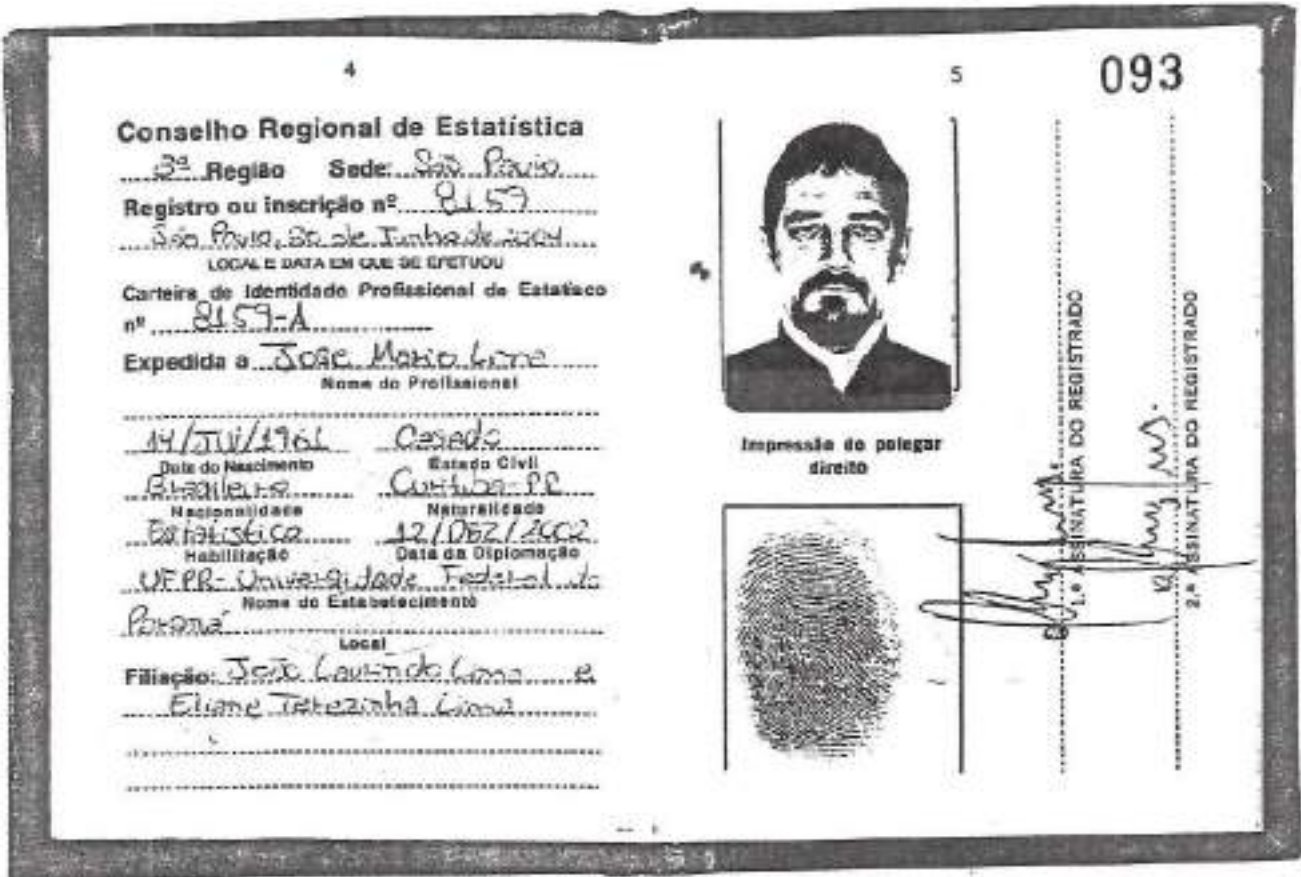 4
Conselho Regional de Estatística
3ª Região Sede: São Paulo
Registro ou inscrição nº 8159
São Paulo, 30 de Junho de 2004
LOCAL E DATA EM QUE SE EFETUOU
Carteira de Identidade Profissional de Estatisco
nº 8159-A
Expedida a José Mario Lima
Nome do Profissional
14/JUL/1961 Casado
Data do Nascimento Estado Civil
Brasileiro Curitiba-PR
Nacionalidade Naturalidade
Estatístico 12/DEZ/2002
Habilitação Data da Diplomação
UFPR-Universidade Federal do
Nome do Estabelecimento
Paraná
Local
Filiação: João Laurindo Lima e
Eliane Terezinha Lima
5
093
Impressão do polegar
direito
1.ª ASSINATURA DO REGISTRADO
2.ª ASSINATURA DO REGISTRADO